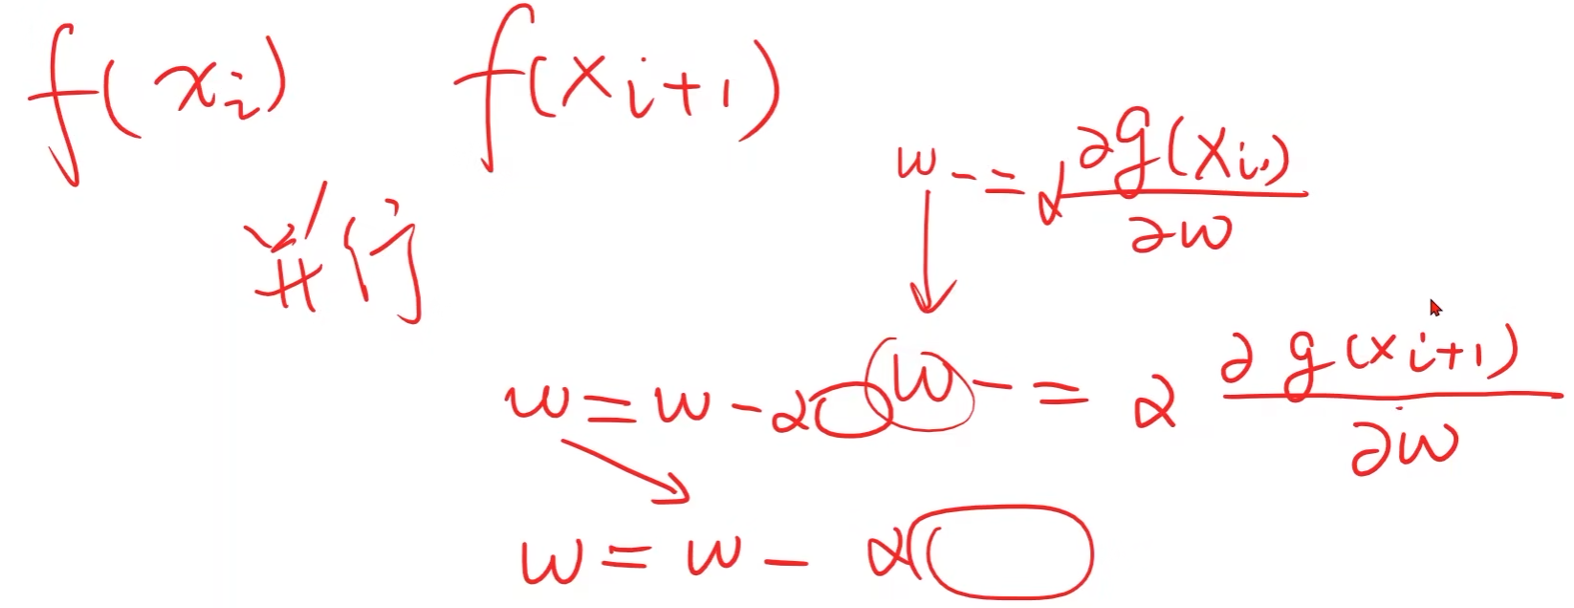 f(xi) f(xi+1)
w -= α ∂g(xi) / ∂w
并行
w = w - α w -= α ∂g(xi+1) / ∂w
w = w - α(